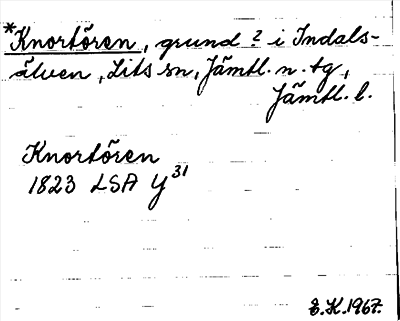 *Knortören, grund ? i Indals-
älven, Lits sn, Jämtl. n. tg,
Jämtl. l.
Knortören
1823 LSA Y31
E.K.1967.